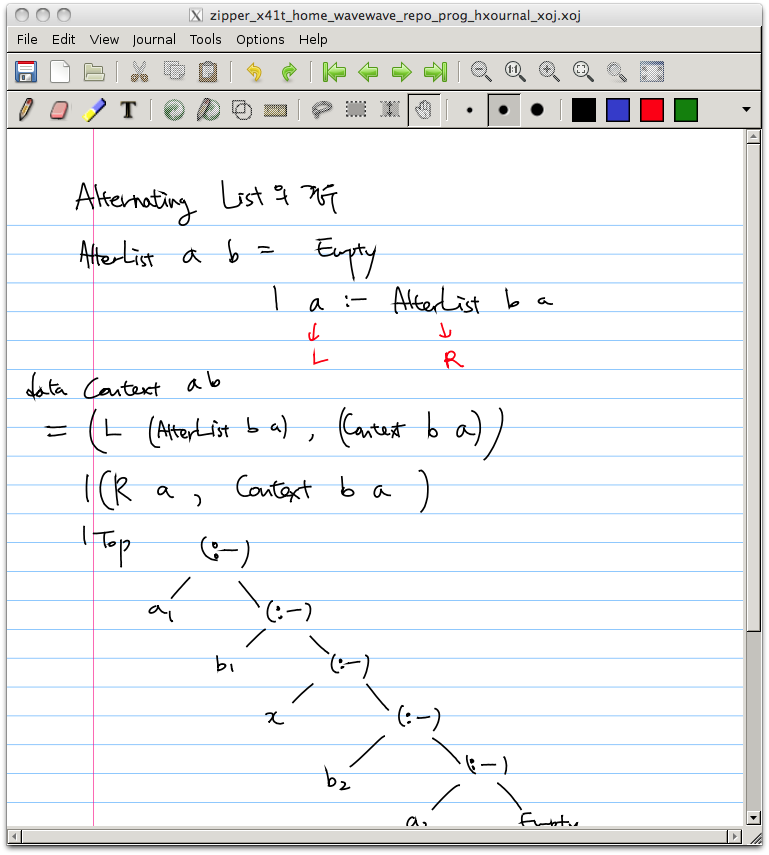 zipper_x41t_home_wavewave_repo_prog_hxournal_xoj.xoj
File Edit View Journal Tools Options Help
T
Alternating List의
AlterList a b = Empty
| a :- AlterList b a
L R
data Context a b
= (L (AlterList b a), (Context b a))
| (R a, Context b a)
| Top
(:-)
a1 (:-)
b1 (:-)
x (:-)
b2 (:-)
a2 Empty